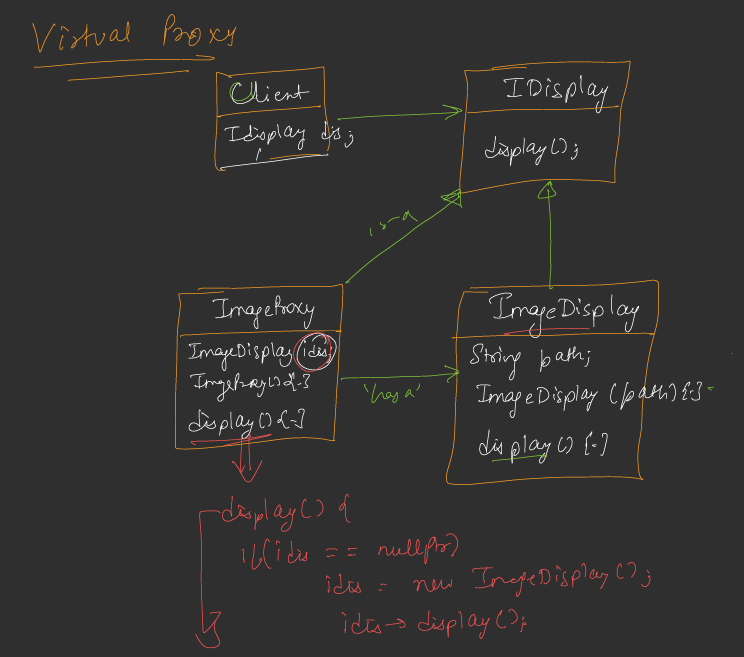 Virtual Proxy
Client
Idisplay dis;
IDisplay
display();
is-a
ImageProxy
ImageDisplay idis
ImageProxy(){-}
display(){-}
'has a'
ImageDisplay
String path;
ImageDisplay (path) {-}
display() {-}
display() {
if(idis == nullptr)
idis = new ImageDisplay();
idis→display();